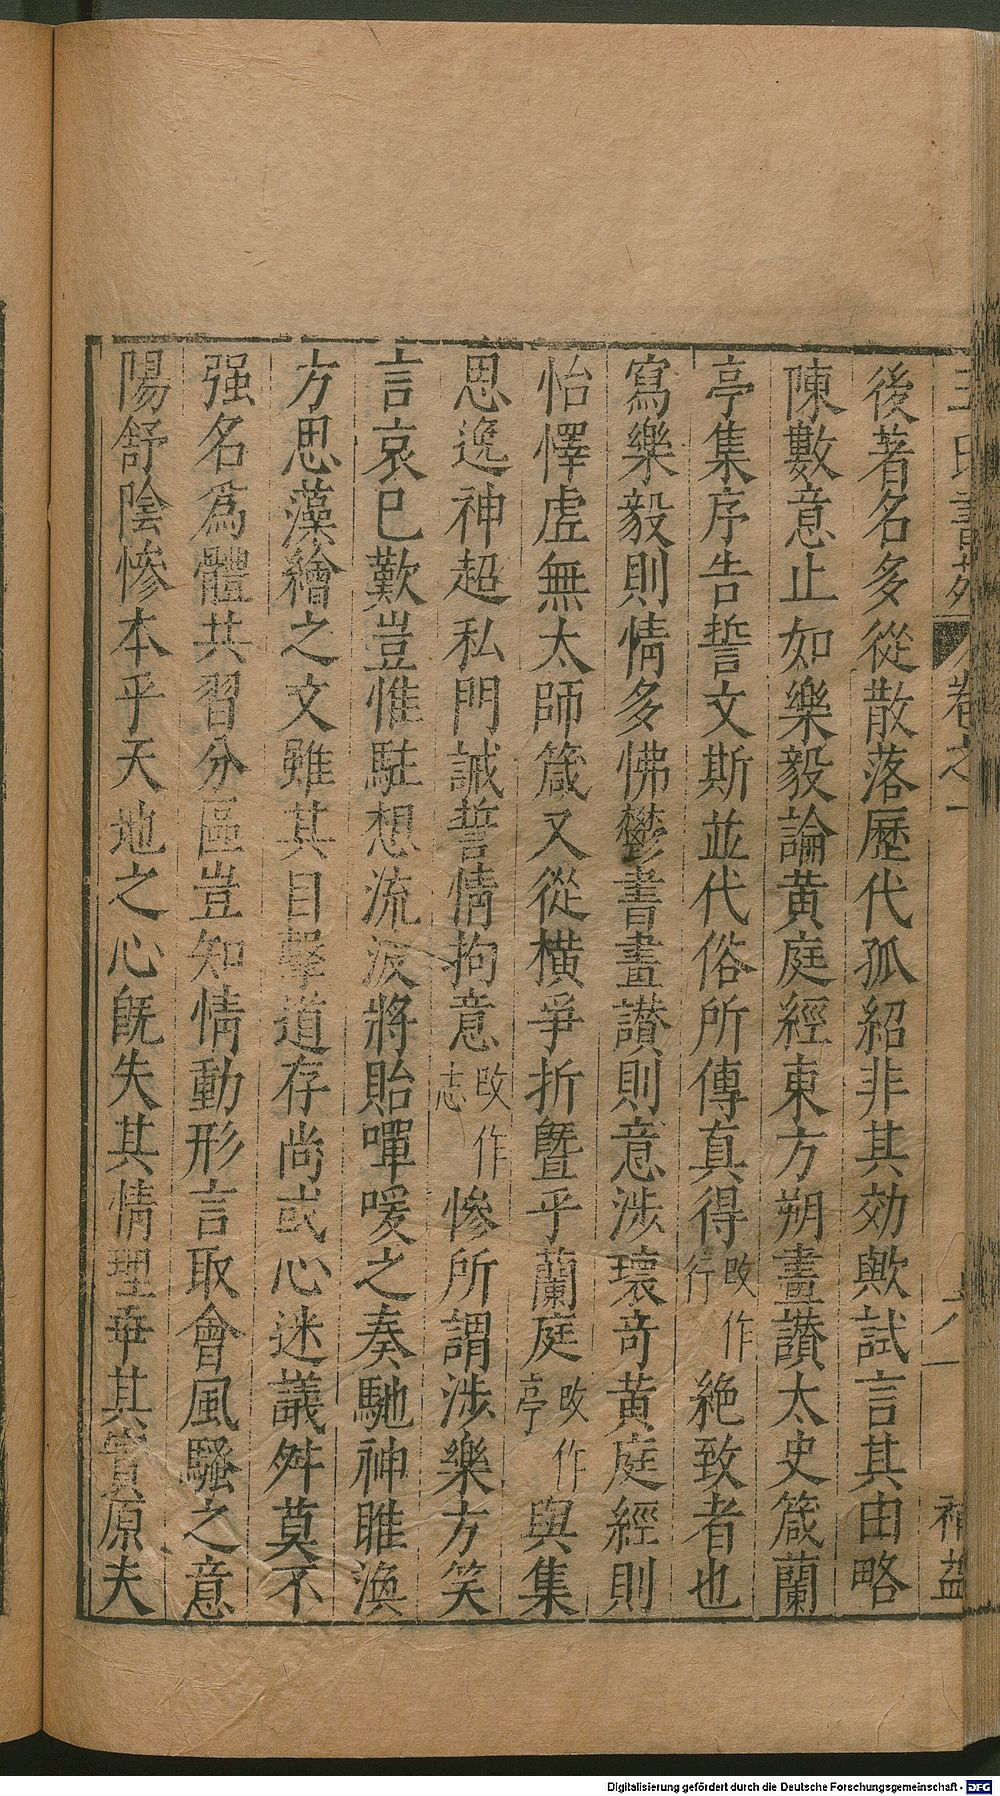 王氏書苑 卷之一 補益
後著名多從散落歷代孤紹非其効歟試言其由略
陳數意止如樂毅論黃庭經東方朔畫讃太史箴蘭
亭集序告誓文斯並代俗所傳真得攺作行絕致者也
寫樂毅則情多怫鬱書畫讃則意涉瓌奇黃庭經則
怡懌虛無太師箴又從橫爭折曁乎蘭庭攺作亭與集
思逸神超私門誡誓情拘意攺作志慘所謂涉樂方笑
言哀已歎豈惟駐想流波將貽嘽喛之奏馳神睢渙
方思藻繪之文雖其目擊道存尚或心迷議舛莫不
强名爲體共習分區豈知情動形言取會風騷之意
陽舒陰慘本乎天地之心旣失其情理乖其實原夫
Digitalisierung gefördert durch die Deutsche Forschungsgemeinschaft - DFG